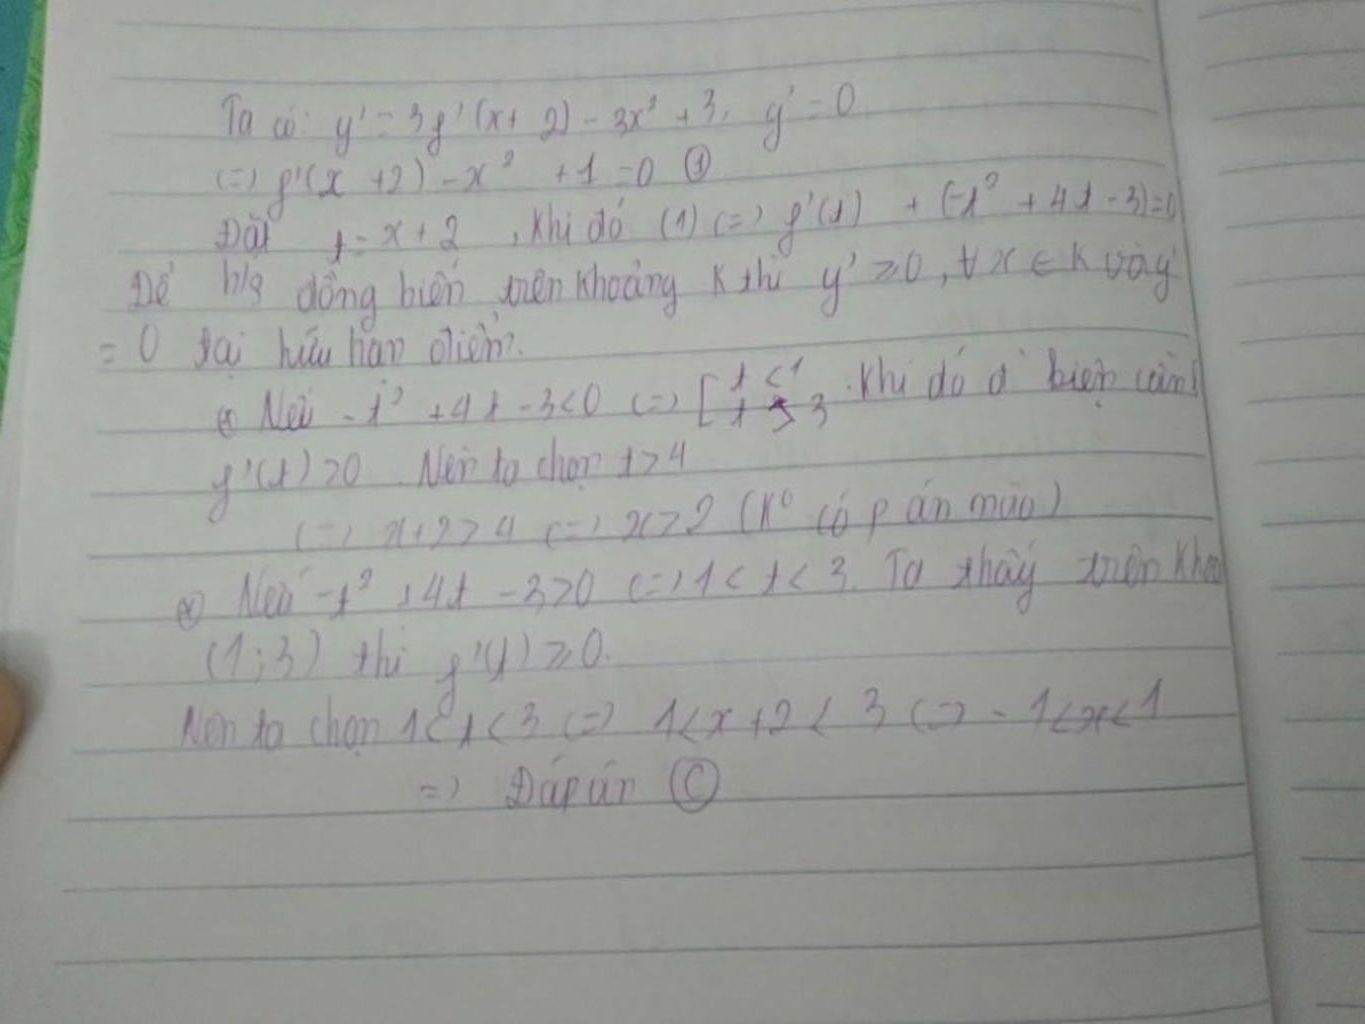 Ta có: y' = 3f'(x+2) - 3x² + 3, y' = 0
(=) f'(x+2) - x² + 1 = 0 ①
Đặt t = x+2, khi đó (1) (=) f'(t) + (-t² + 4t - 3) = 0
Để h/s đồng biến trên khoảng K thì y' ≥ 0, ∀x ∈ K và y'
= 0 tại hữu hạn điểm.
Nếu -t² + 4t - 3 < 0 (=) [t < 1 t > 3. Khi đó đ' biện
f'(t) > 0. Nên ta chọn t > 4
(=) x+2 > 4 (=) x > 2 (K⁰ có p án nào)
Nếu -t² + 4t - 3 > 0 (=) 1 < t < 3. Ta thấy trên
(1;3) thì f'(t) ≥ 0.
Nên ta chọn 1 < t < 3 (=) 1 < x+2 < 3 (=) -1 < x < 1
=) Đáp án Ⓒ